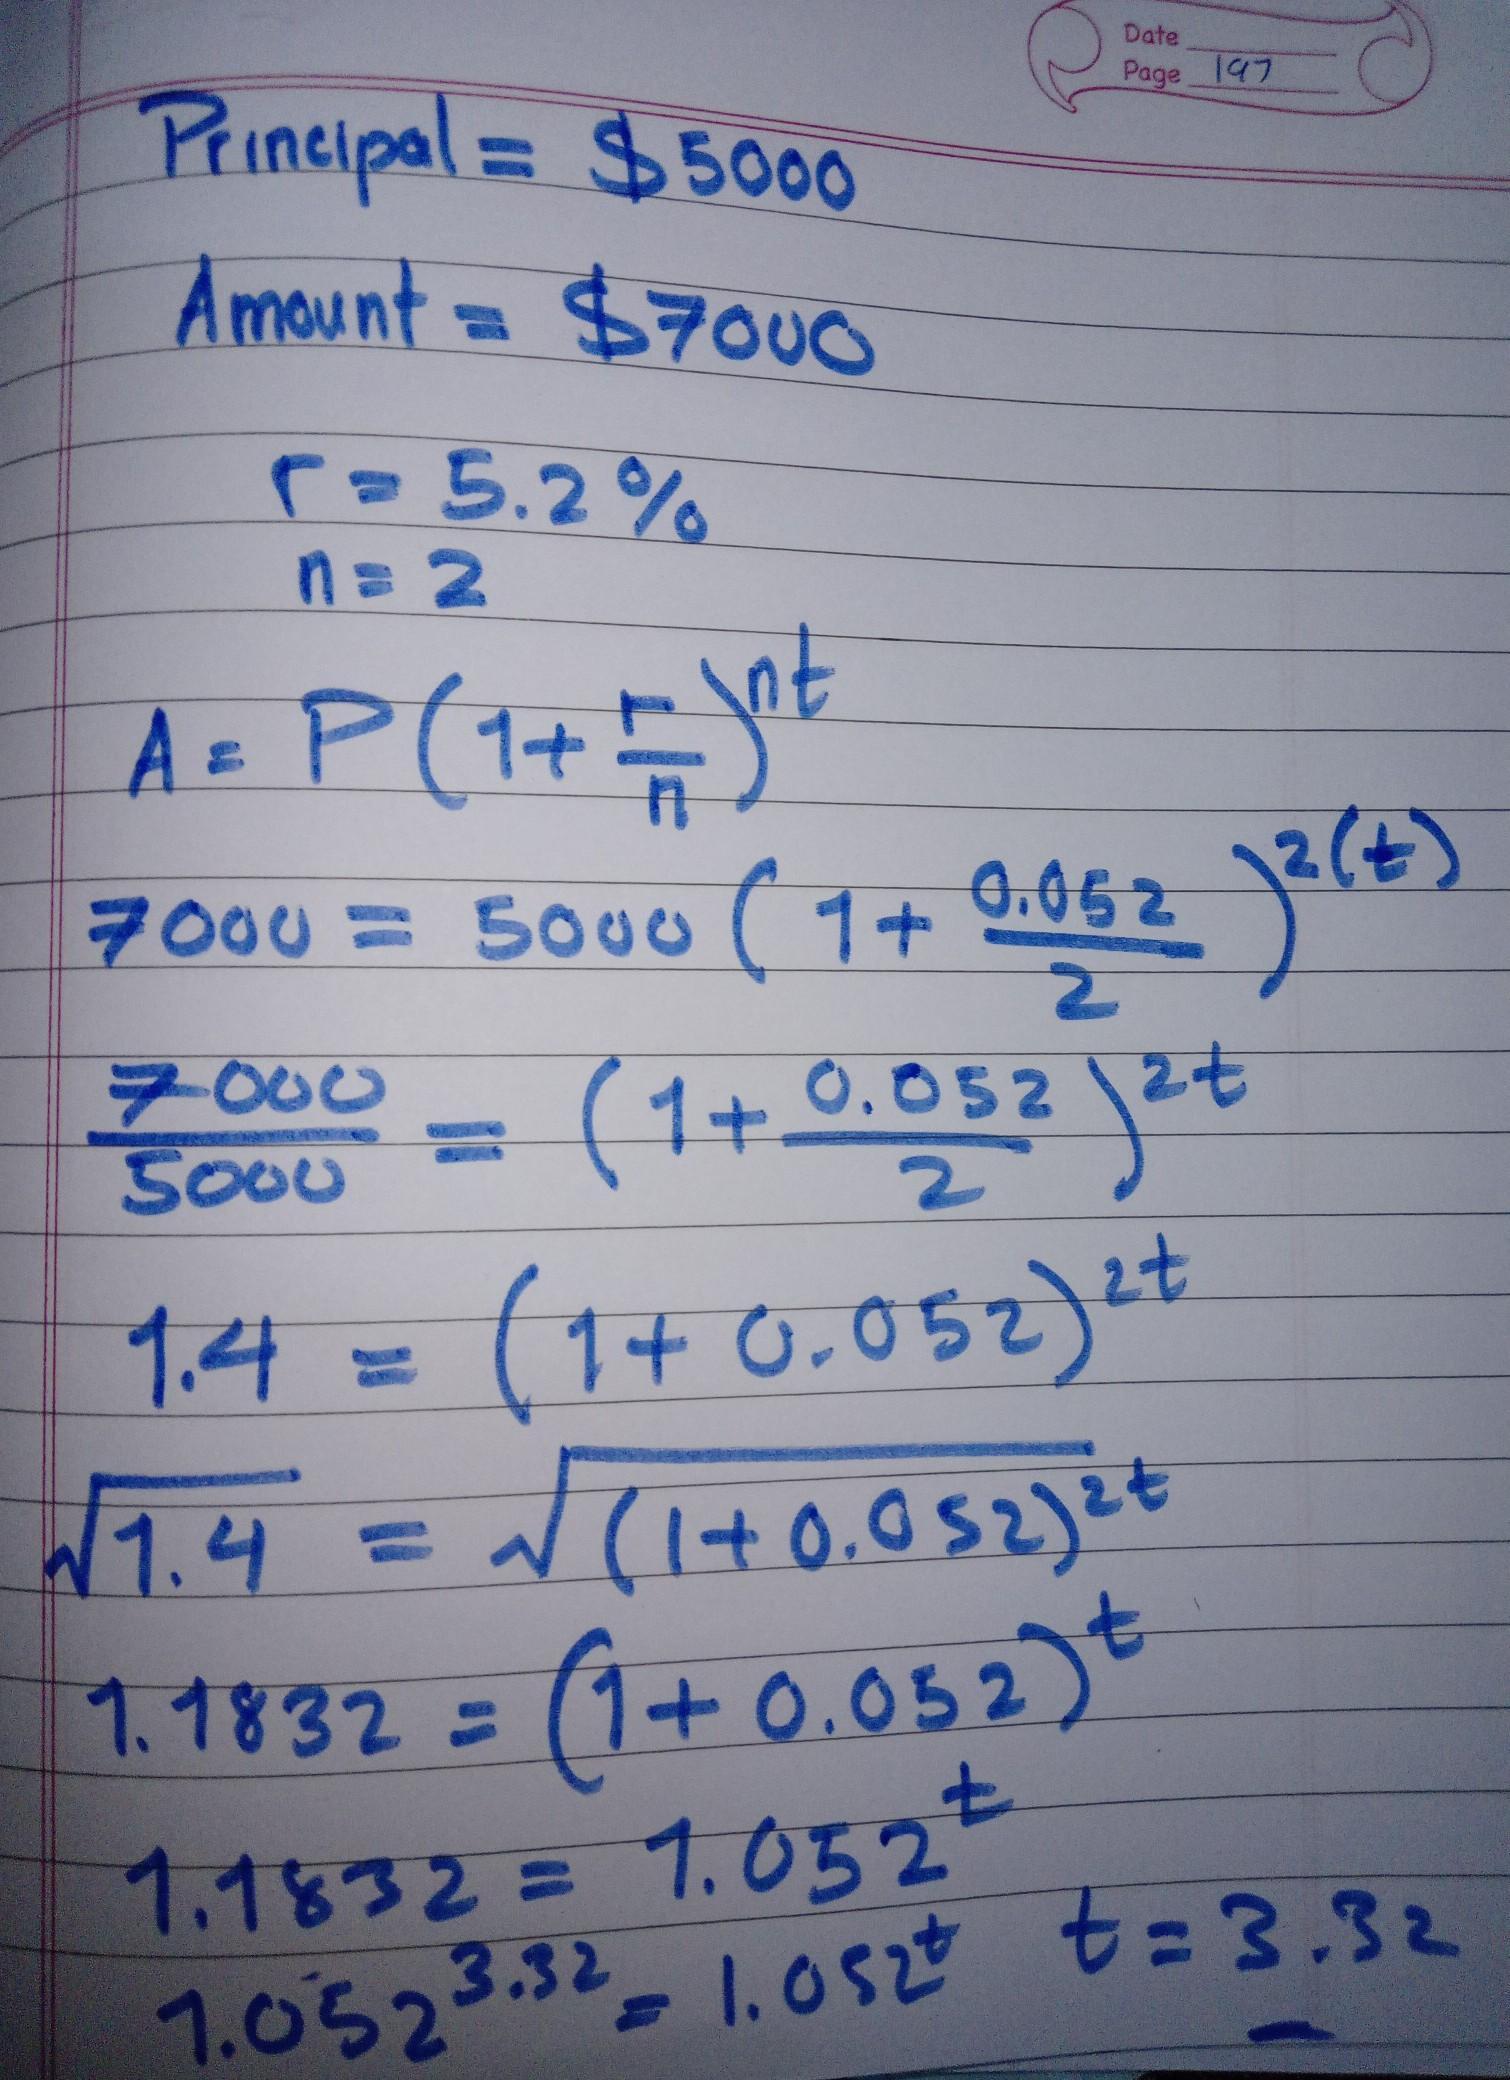 Date
Page 197
Principal = $5000
Amount = $7000
r = 5.2%
n = 2
A = P(1+ r/n)^nt
7000 = 5000 (1+ 0.052/2)^2(t)
7000/5000 = (1+ 0.052/2)^2t
1.4 = (1+ 0.052)^2t
√1.4 = √(1+0.052)^2t
1.1832 = (1+0.052)^t
1.1832 = 1.052^t
1.052^3.32 = 1.052^t t = 3.32